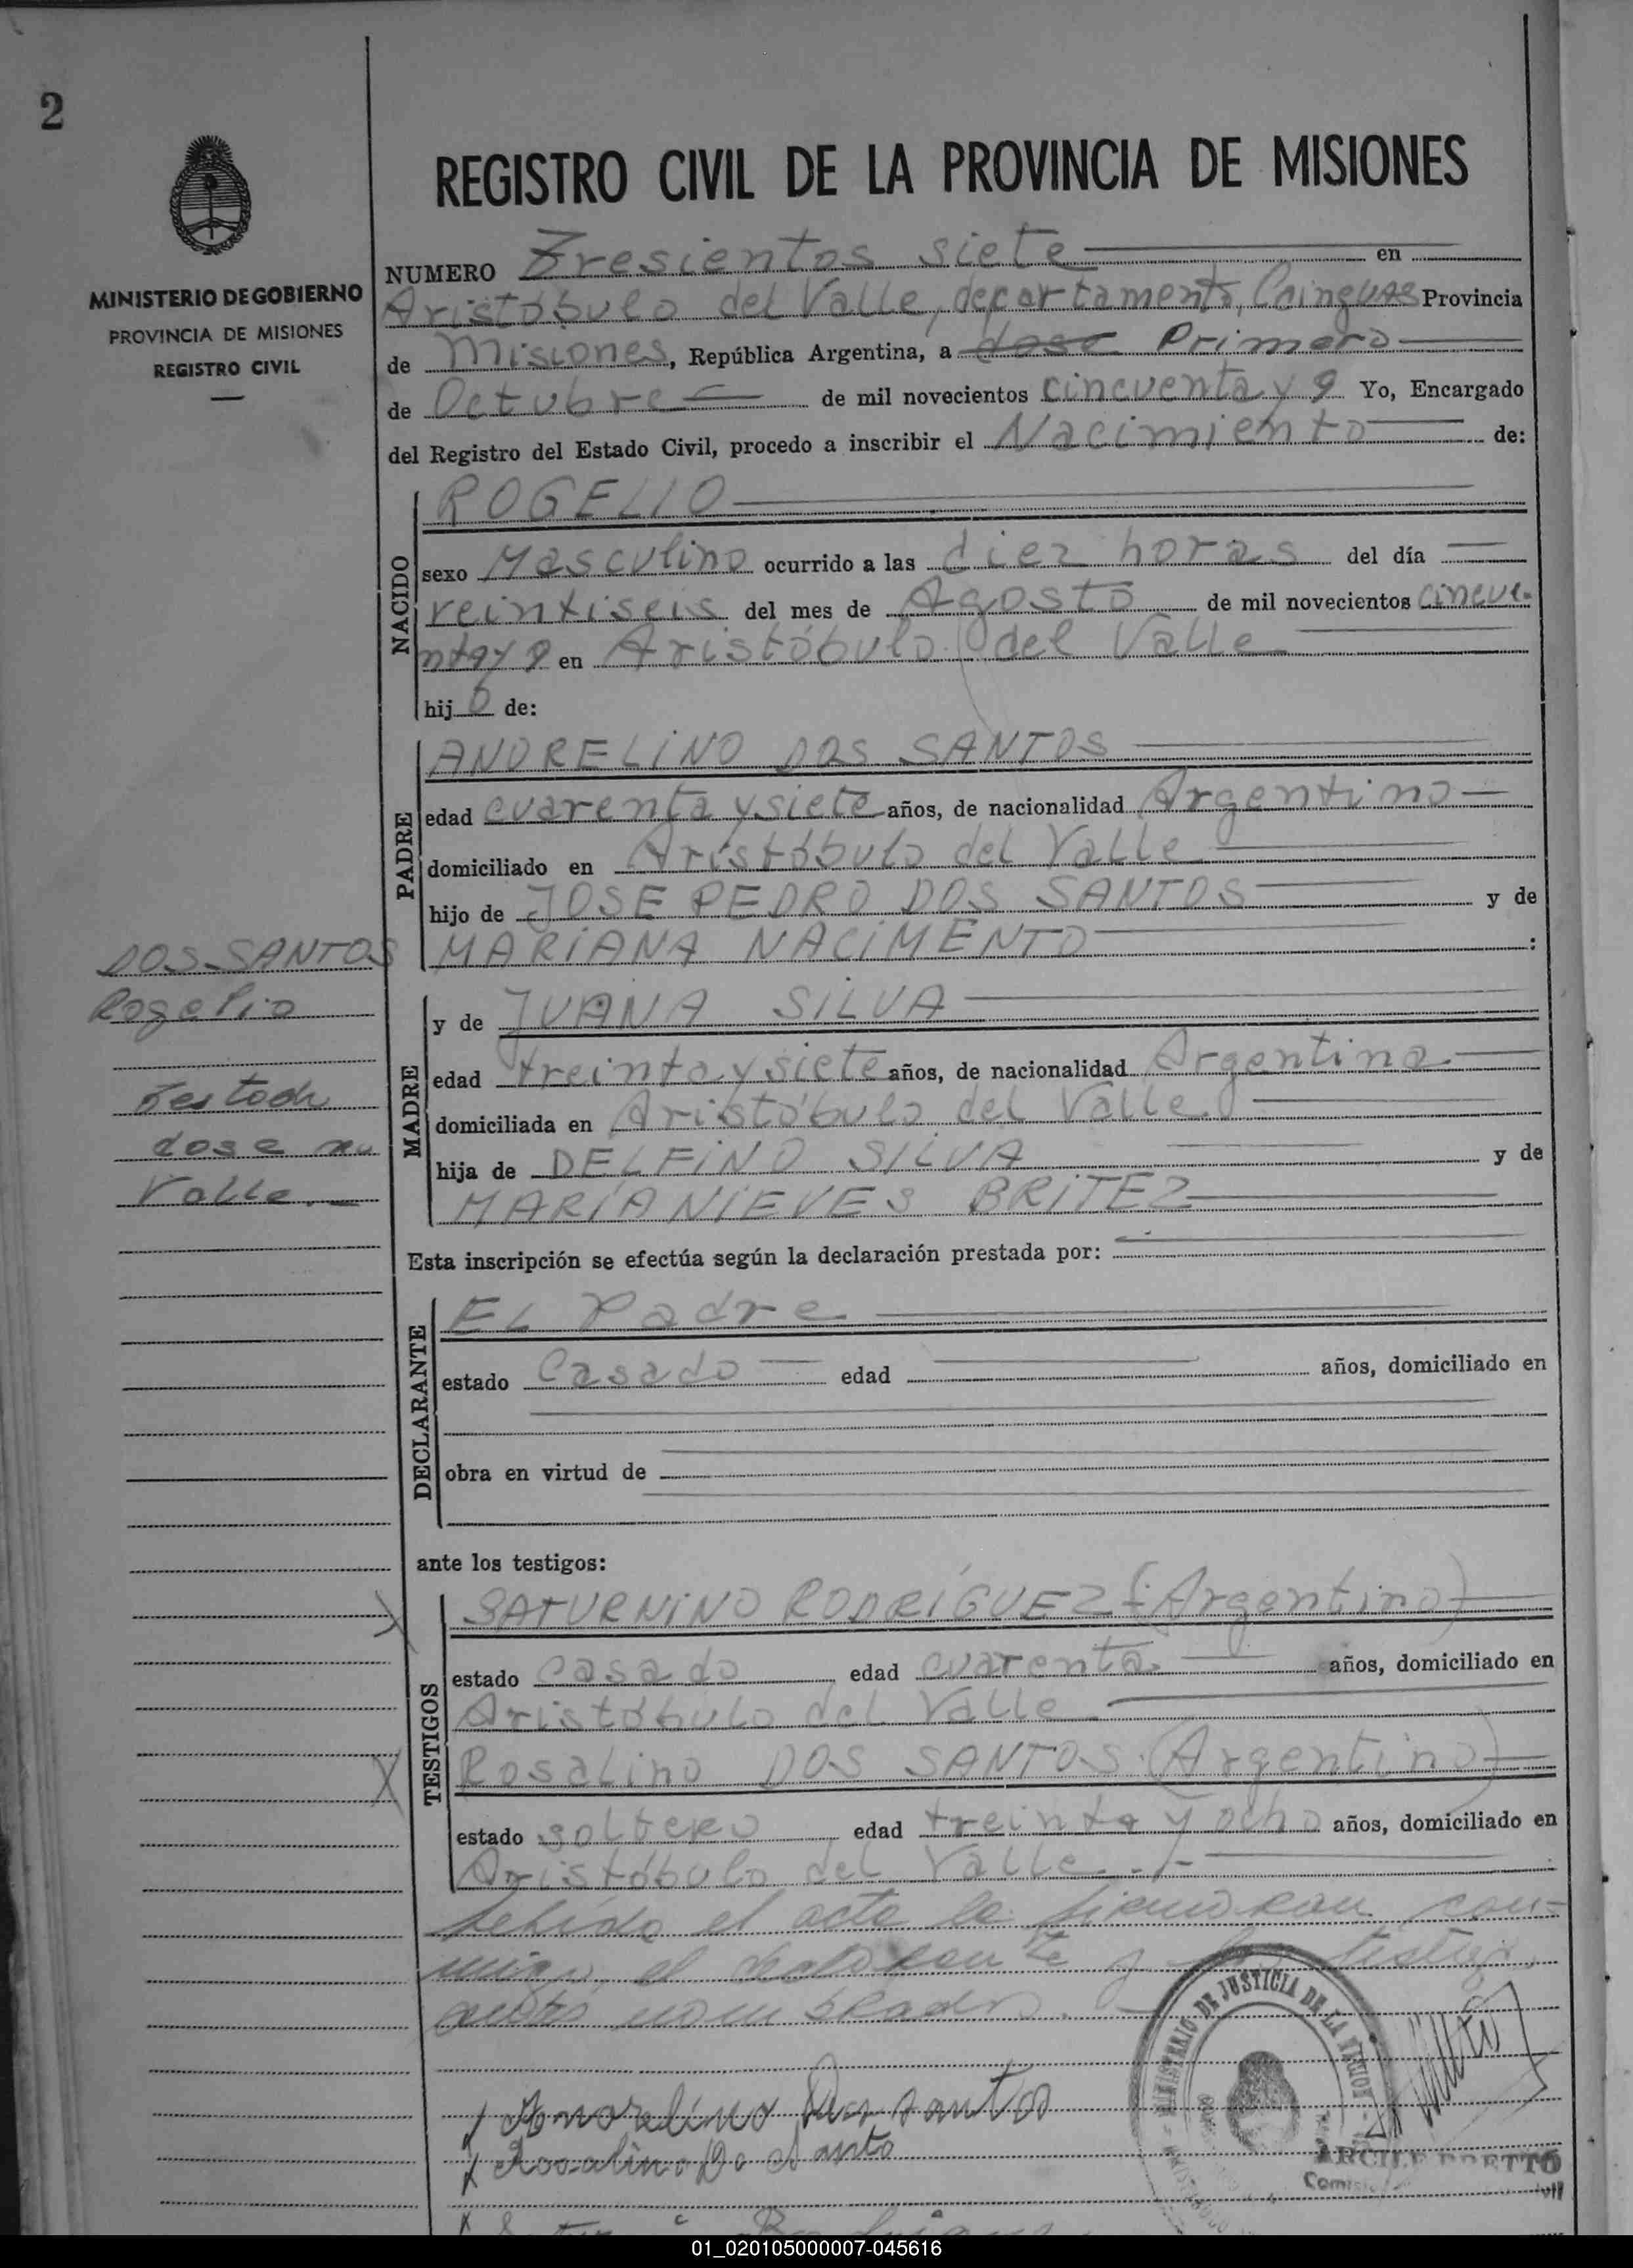 2
MINISTERIO DE GOBIERNO
PROVINCIA DE MISIONES
REGISTRO CIVIL
REGISTRO CIVIL DE LA PROVINCIA DE MISIONES
NUMERO Tresientos siete en
Aristóbulo del Valle, departamento, Cainguas Provincia
de Misiones, República Argentina, a dose Primero
de Octubre de mil novecientos cincuenta y 9 Yo, Encargado
del Registro del Estado Civil, procedo a inscribir el Nacimiento de:
NACIDO
ROGELIO
sexo Masculino ocurrido a las diez horas del día
veintiseis del mes de Agosto de mil novecientos cincue-
nta y 9 en Aristóbulo del Valle
hijo de:
PADRE
ANDRELINO DOS SANTOS
edad cuarenta y siete años, de nacionalidad Argentino
domiciliado en Aristóbulo del Valle
hijo de JOSE PEDRO DOS SANTOS y de
MARIANA NACIMENTO :
DOS SANTOS
Rogelio
Testado
dose no
Valle.
MADRE
y de JUANA SILVA
edad treinta y siete años, de nacionalidad Argentina
domiciliada en Aristóbulo del Valle.
hija de DELFINO SILVA y de
MARÍA NIEVES BRITEZ
Esta inscripción se efectúa según la declaración prestada por:
DECLARANTE
EL Padre
estado Casado edad años, domiciliado en
obra en virtud de
ante los testigos:
TESTIGOS
SATURNINO RODRÍGUEZ (Argentino)
estado casado edad cuarenta años, domiciliado en
Aristóbulo del Valle
Rosalino DOS SANTOS (Argentino)
estado soltero edad treinta y ocho años, domiciliado en
Aristóbulo del Valle
el acta la firmaran con-
migo, el declarante y los testigos
nombrados.
MINISTERIO DE JUSTICIA DE LA
Andrelino Dos santos
Rosalino Do Santo
01_020105000007-045616